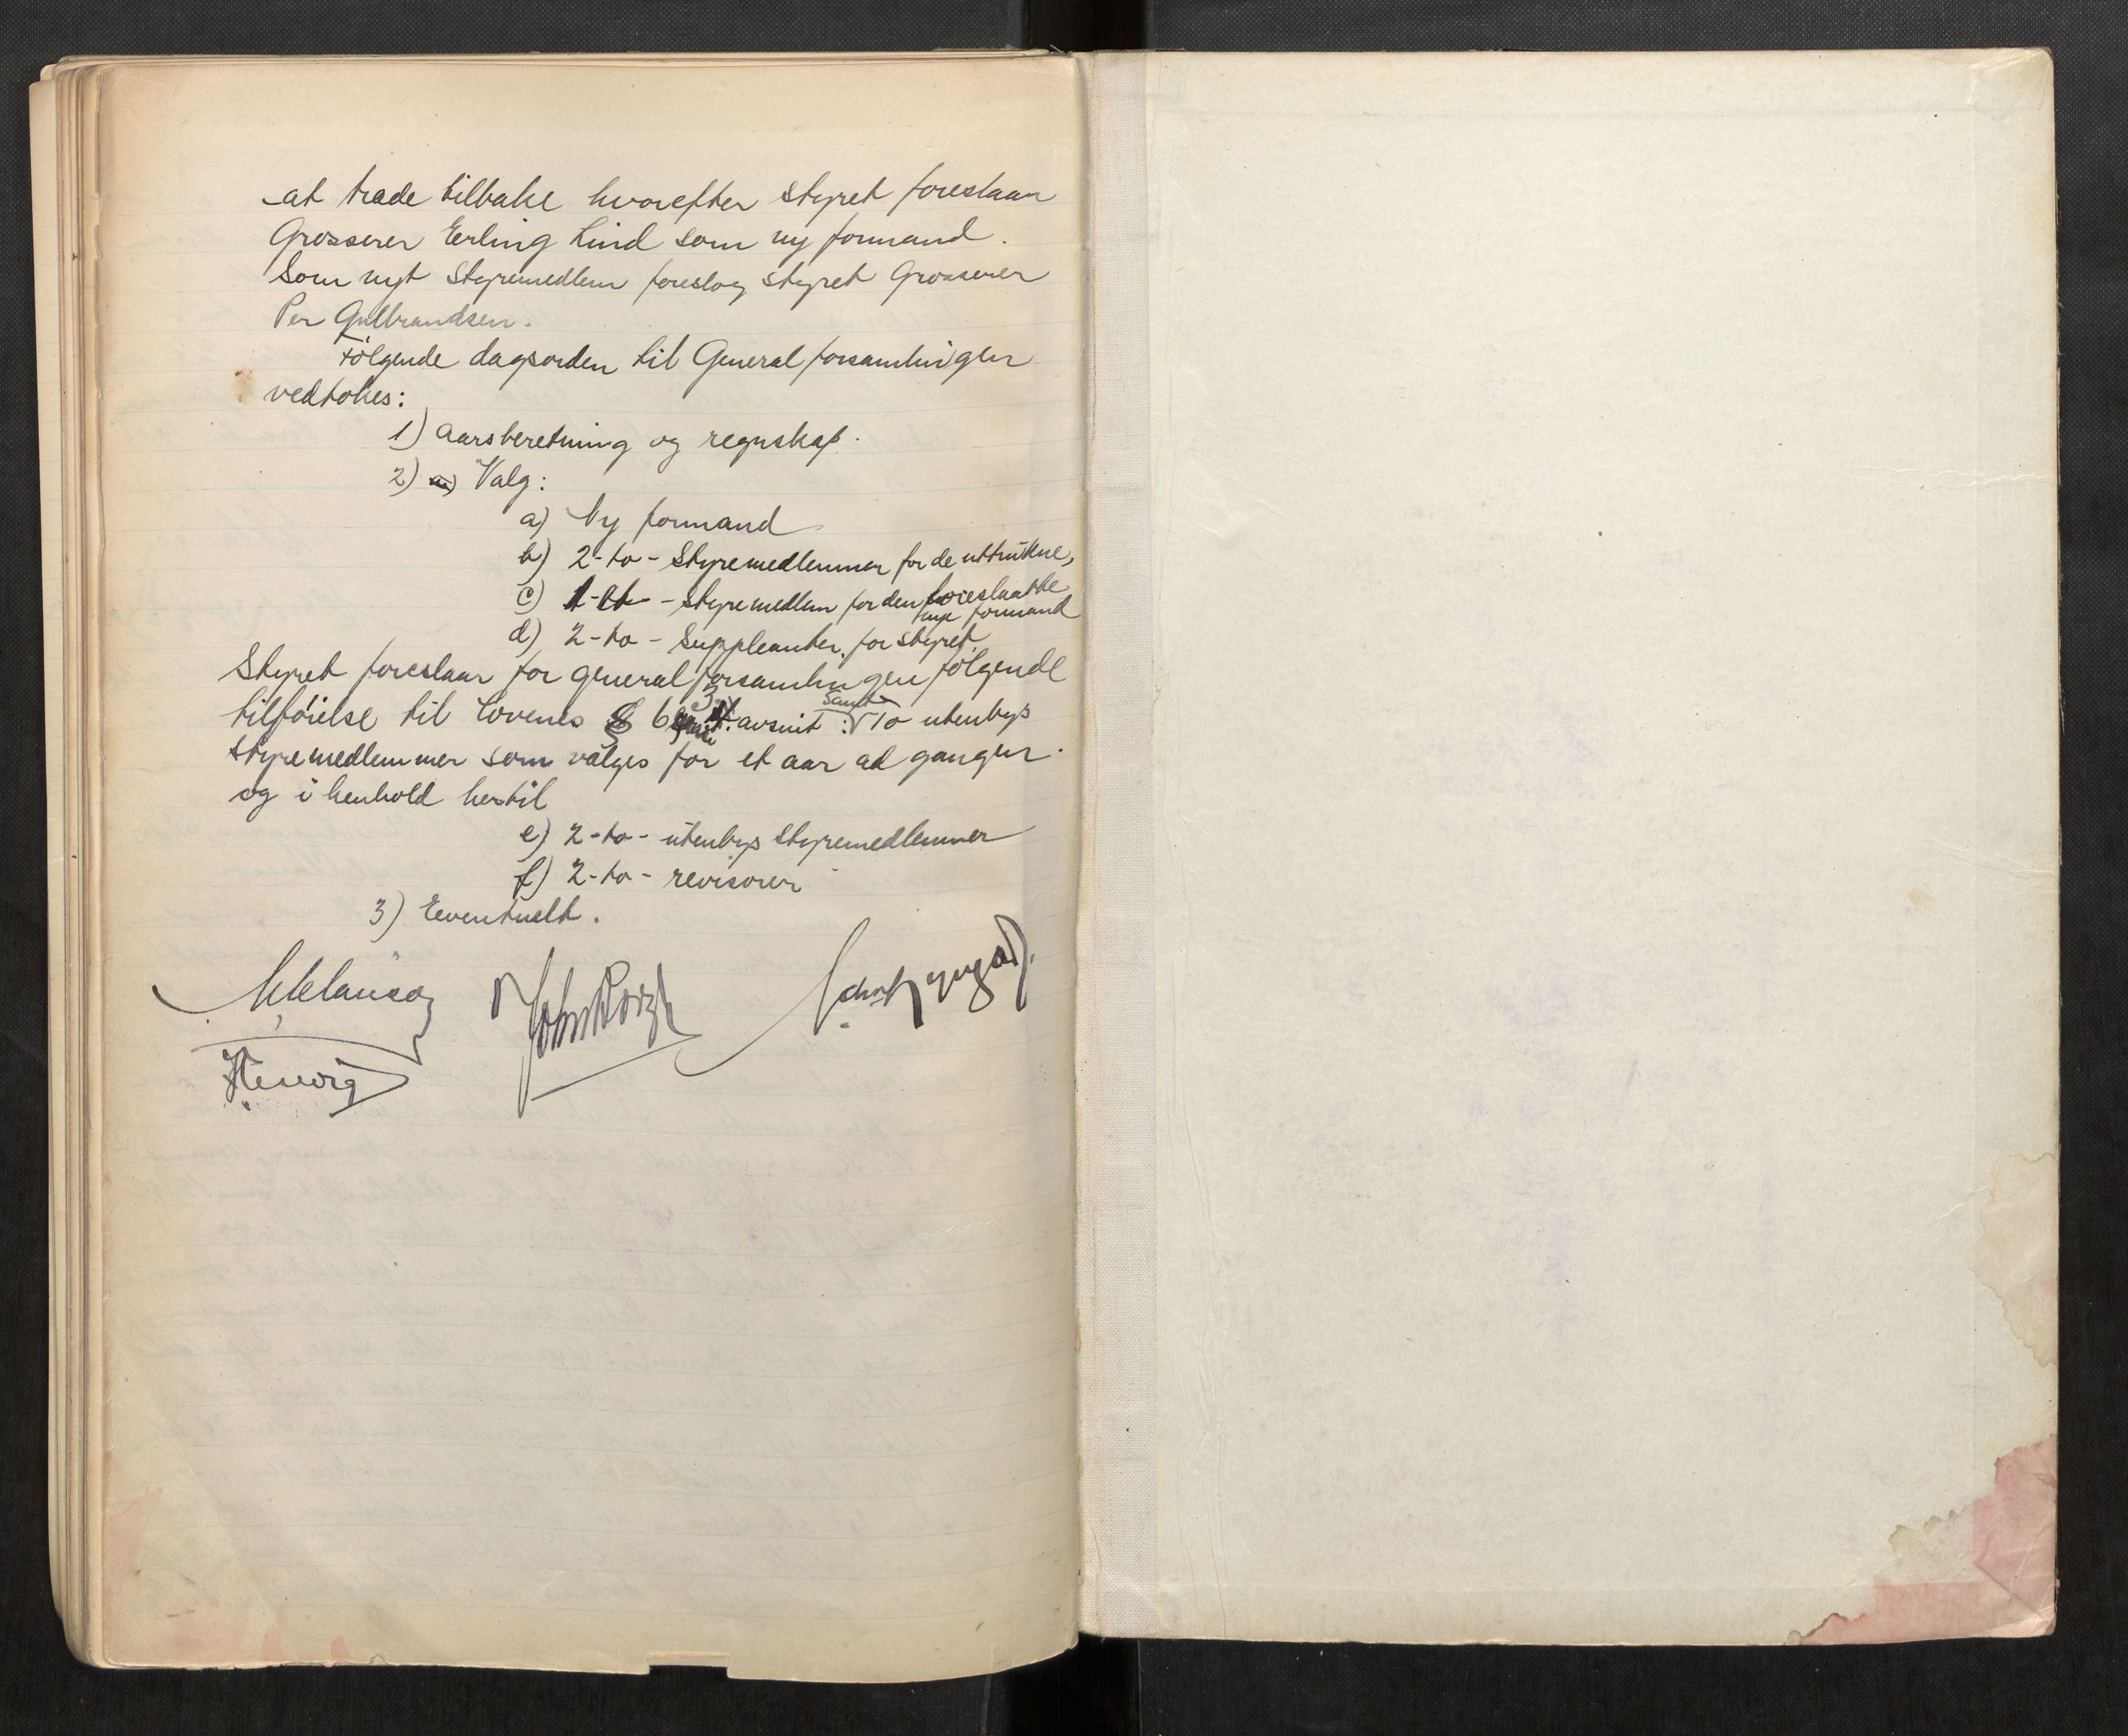 at træde tilbake hvorefter styret foreslaar
Grosserer Erling Lind som ny formand.
Som nyt Styremedlem foreslog styret Grosserer
Per Gulbrandsen.
Følgende dagsorden til Generalforsamlingen
vedtokes:
1) Aarsberetning og regnskap.
2) Valg:
a) Ny formand
b) 2-to- Styremedlemmer for de uttrukne,
c) 1-et- Styremedlem for den foreslaatte
nye formand
d) 2-to- Suppleanter for styret.
Styret foreslaar for generalforsamlingen følgende
tilføielse til lovenes § 6 3 avsnit: samt To utenbys
styremedlemmer som vælges for et aar ad gangen.
og i henhold hertil
e) 2-to- utenbys styremedlemmer
f) 2-to- revisorer
3) Eventuelt.